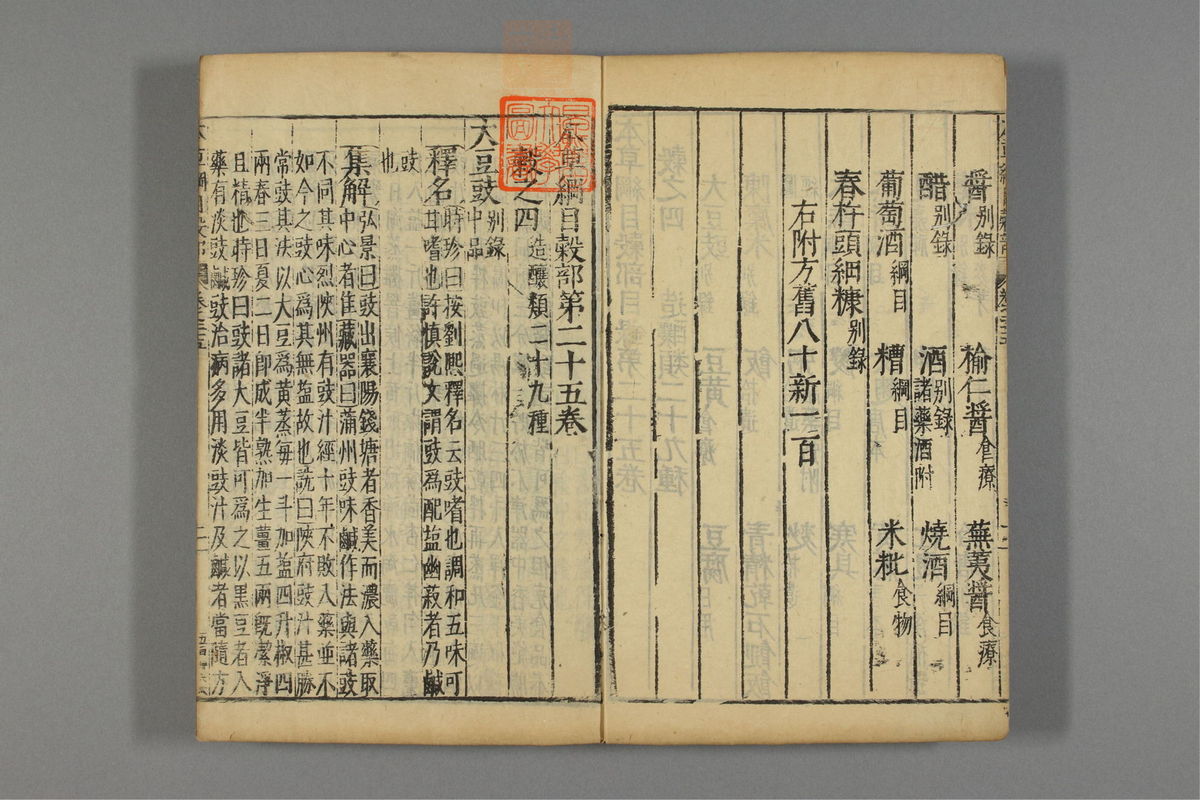 醬别錄 榆仁醬食療 蕪荑醬食療
醋别錄 酒别錄諸藥酒附 燒酒綱目
葡萄酒綱目 糟綱目 米秕食物
春杵頭細糠别錄
右附方舊八十新一百
本草綱目穀部第二十五卷
穀之四 造釀類二十九種
大豆豉别錄中品
釋名時珍曰按劉熙釋名云豉嗜也調和五味可
甘嗜也許慎說文謂豉爲配盐幽菽者乃鹹
豉
也
集解弘景曰豉出襄陽錢塘者香美而濃入藥取
中心者佳藏器曰蒲州豉味鹹作法與諸豉
不同其味烈陝州有豉汁經十年不敗入藥並不
如今之豉心爲其無盐故也詵曰陝府豉汁甚勝
常豉其法以大豆爲黃蒸每一斗加盐四升椒四
兩春三日夏二日即成半熟加生薑五兩既潔淨
且精也時珍曰豉諸大豆皆可爲之以黑豆者入
藥有淡豉鹹豉治病多用淡豉汁及鹹者當隨方